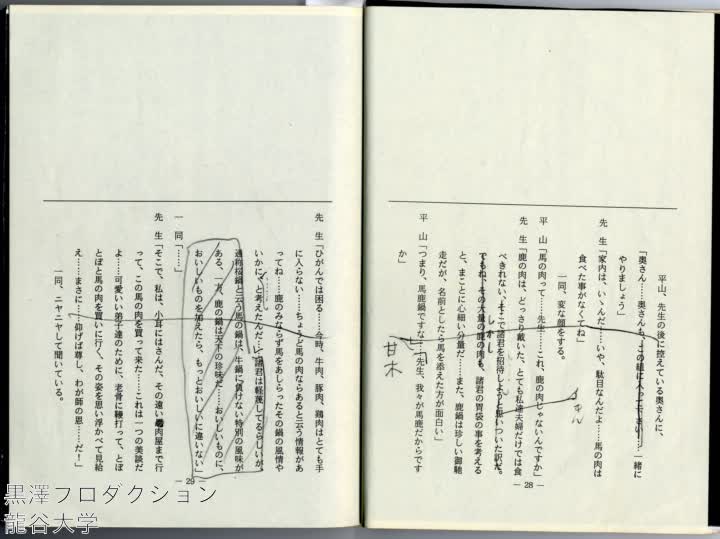 平山、先生の後に控えている奥さんに、
「奥さん……奥さんも、この組に入って下さい……一緒に
やりましょう」
先 生「家内は、い、んだ……いや、駄目なんだよ……馬の肉は
食べた事がなくてね」
一同、変な顔をする。
平 山「馬の肉って……先生……これ、鹿の肉じゃないんですか」
先 生「鹿の肉は、どっさり戴いた、とても私達夫婦だけでは食
べきれない、そこで諸君を招待しようと思いついた訳だ。
でもね、その大量の鹿の肉も、諸君の胃袋の事を考える
と、まことに心細い分量だ……また、鹿鍋は珍しい御馳
走だが、名前としたら馬を添えた方が面白い」
平 山「つまり、馬鹿鍋ですな……先生、我々が馬鹿だからです
か」
甘木
— 28 —
先 生「ひがんでは困る……今時、牛肉、豚肉、鶏肉はとても手
に入らない……ちょうど馬の肉ならあると云う情報があ
ってね……鹿のみならず馬をあしらったその鍋の風情や
いかに、と考えたんだ……諸君は軽蔑してるらしいが、
通称桜鍋と云う馬の鍋は、牛鍋に負けない特別の風味が
ある、一方、鹿の鍋は天下の珍味だ……おいしいものに、
おいしいものを加えたら、もっとおいしいに違いない」
一 同「……」
先 生「そこで、私は、小耳にはさんだ、その遠い肉屋まで行
って、この馬の肉を買って来た……これは一つの美談だ
よ……可愛いい弟子達のために、老骨に鞭打って、とぼ
とぼと馬の肉を買いに行く、その姿を思い浮かべて見給
え……まさに……仰げば尊し、わが師の恩……だ！」
一同、ニヤニヤして聞いている。
— 29 —
黒澤プロダクション
龍谷大学